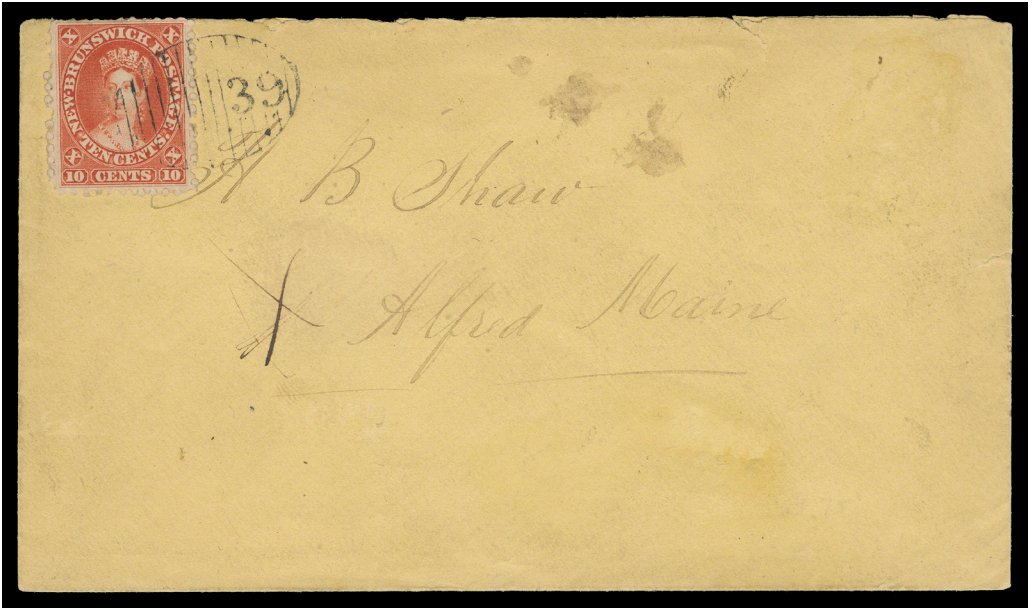 X X
NEW-BRUNSWICK POSTAGE.
TEN CENTS.
X X
10 CENTS 10
39
A B Shaw
X Alfred Maine